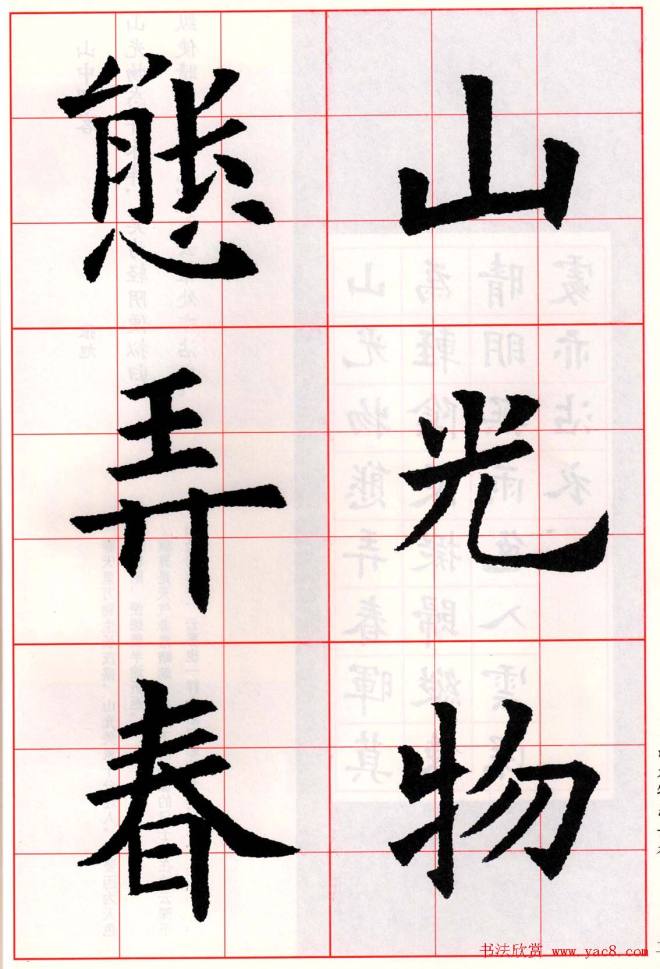 山光物
態弄春
书法欣赏 www.yac8.com